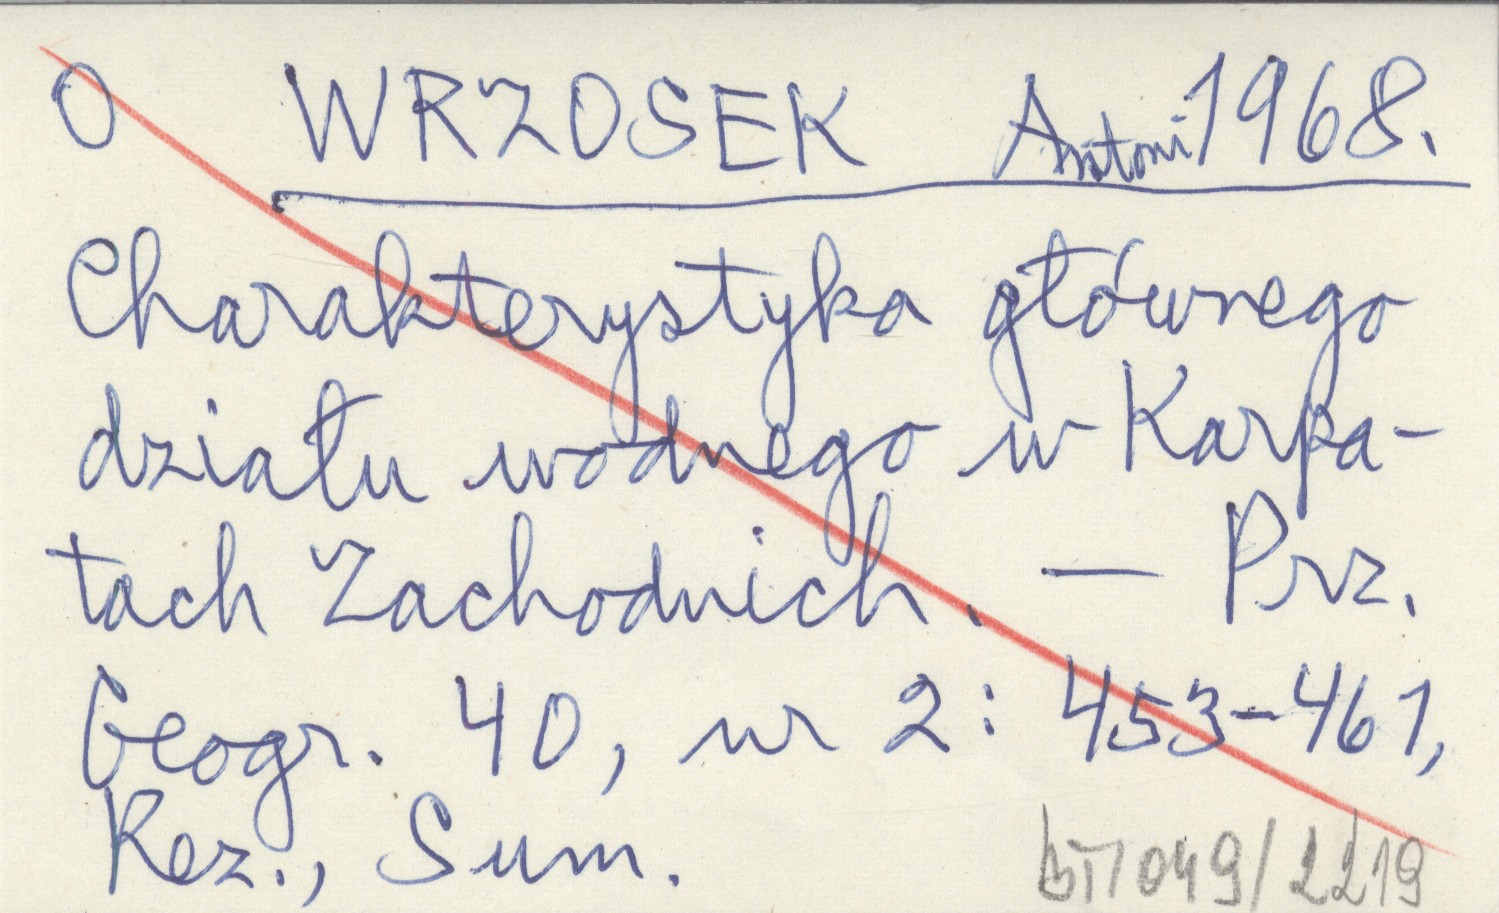 O WRZOSEK Antoni 1968.
Charakterystyka głównego
działu wodnego w Karpa-
tach Zachodnich. — Prz.
Geogr. 40, nr 2: 453-461,
Rez., Sum.
049/2219